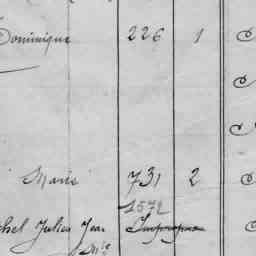 Dominique 226 1
Marie 731 2
1572
chel Julien Jean
Me